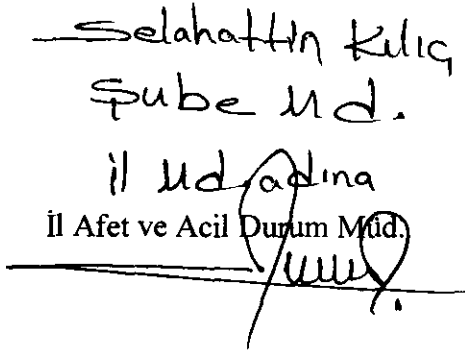 Selahattin Kılıç
Şube Md.
İl Md. adına
İl Afet ve Acil Durum Müd.